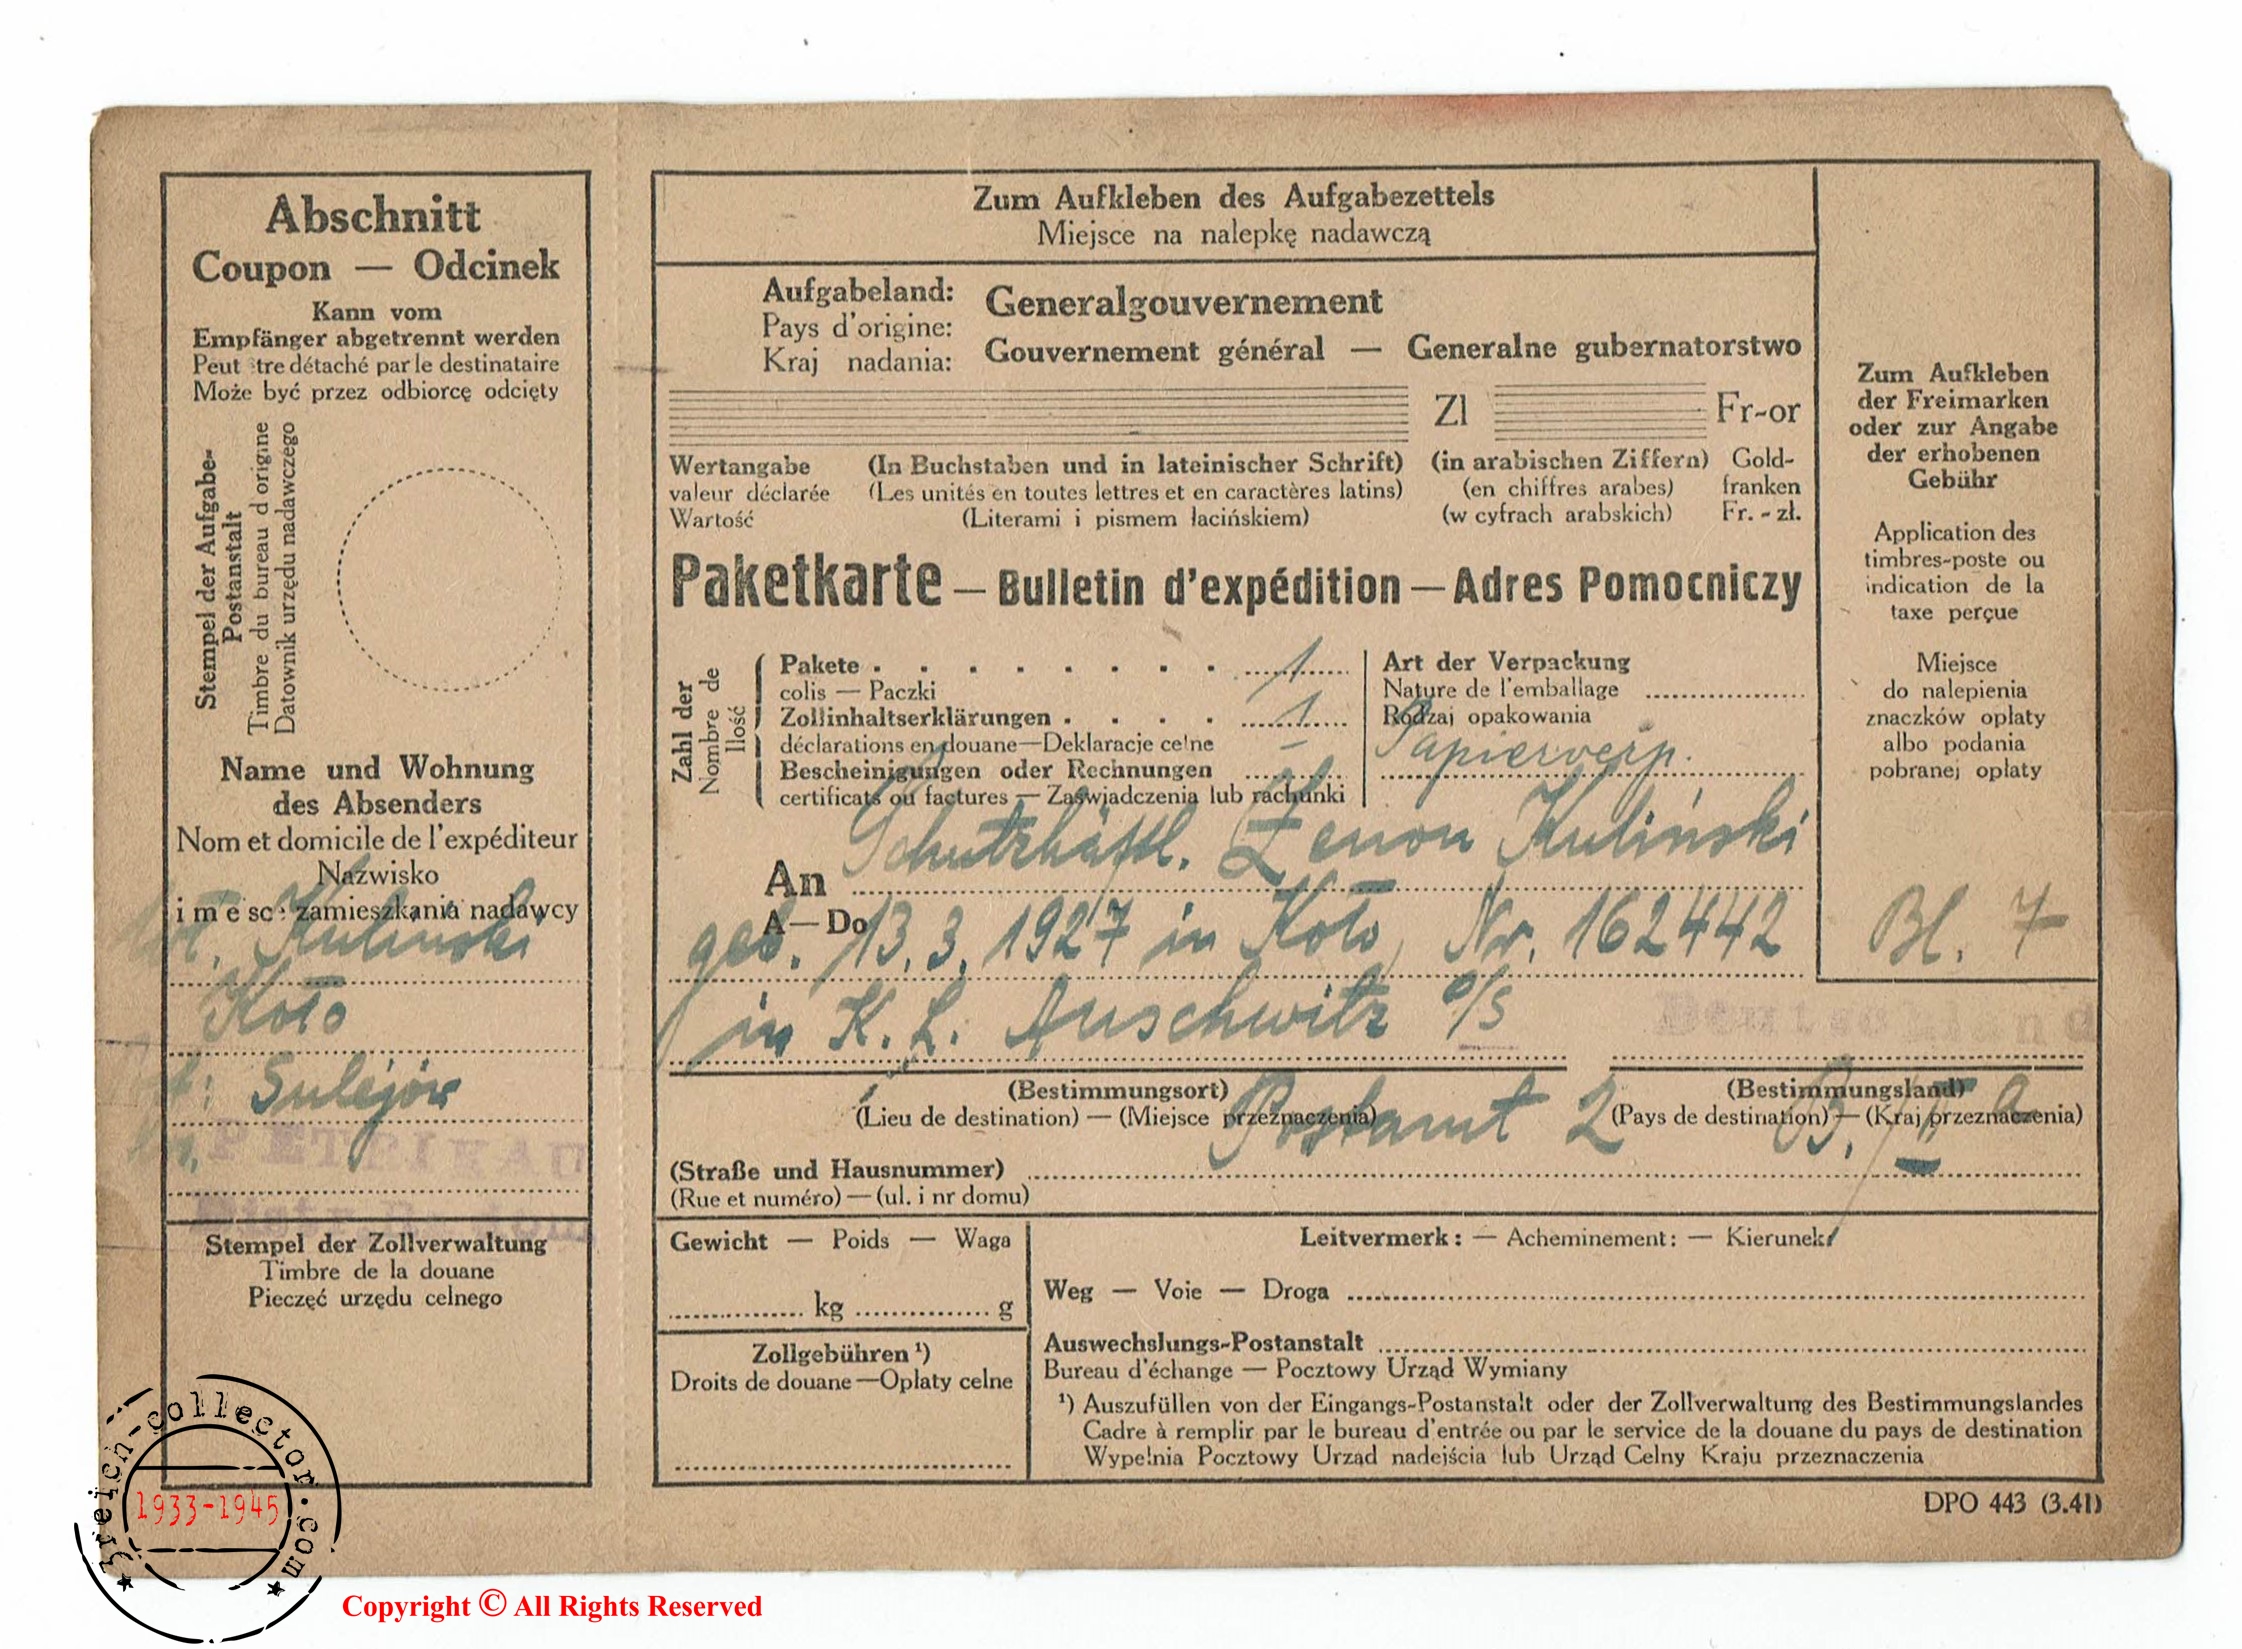 Abschnitt
Coupon — Odcinek
Kann vom
Empfänger abgetrennt werden
Peut tre détaché par le destinataire
Może być przez odbiorcę odcięty
Stempel der Aufgabe-
Postanstalt
Timbre du bureau d origine
Datownik urzędu nadawczego
Name und Wohnung
des Absenders
Nom et domicile de l'expéditeur
Nazwisko
i m e sce zamieszkania nadawcy
Kuliński
Koło
Sulejów
PETRIKAU
Distr. Radom
Stempel der Zollverwaltung
Timbre de la douane
Pieczęć urzędu celnego
Zum Aufkleben des Aufgabezettels
Miejsce na nalepkę nadawczą
Aufgabeland: Generalgouvernement
Pays d'origine:
Kraj nadania: Gouvernement général — Generalne gubernatorstwo
Zl Fr-or
Wertangabe (In Buchstaben und in lateinischer Schrift) (in arabischen Ziffern) Gold-
valeur déclarée (Les unités en toutes lettres et en caractères latins) (en chiffres arabes) franken
Wartość (Literami i pismem łacińskiem) (w cyfrach arabskich) Fr. - zł.
Paketkarte — Bulletin d'expédition — Adres Pomocniczy
Zahl der
Nombre de
Ilość
Pakete 1
colis — Paczki
Zollinhaltserklärungen 1
déclarations en douane—Deklaracje celne
Bescheinigungen oder Rechnungen –
certificats ou factures — Zaświadczenia lub rachunki
Art der Verpackung
Nature de l'emballage
Rodzaj opakowania
Papierverp.
An Schutzhäftl. Zenon Kuliński
A—Do
geb. 13. 3. 1927 in Koło, Nr. 162442
in K. L. Auschwitz O/S
Deutschland
(Bestimmungsort) (Bestimmungsland)
(Lieu de destination) — (Miejsce przeznaczenia) (Pays de destination) — (Kraj przeznaczenia)
Postamt 2
(Straße und Hausnummer)
(Rue et numéro) — (ul. i nr domu)
Gewicht — Poids — Waga
kg g
Zollgebühren ¹)
Droits de douane—Opłaty celne
Leitvermerk: — Acheminement: — Kierunek:
Weg — Voie — Droga
Auswechslungs-Postanstalt
Bureau d'échange — Pocztowy Urząd Wymiany
¹) Auszufüllen von der Eingangs-Postanstalt oder der Zollverwaltung des Bestimmungslandes
Cadre à remplir par le bureau d'entrée ou par le service de la douane du pays de destination
Wypełnia Pocztowy Urząd nadejścia lub Urząd Celny Kraju przeznaczenia
Zum Aufkleben
der Freimarken
oder zur Angabe
der erhobenen
Gebühr
Application des
timbres-poste ou
indication de la
taxe perçue
Miejsce
do nalepienia
znaczków opłaty
albo podania
pobranej opłaty
Bl. 7
DPO 443 (3.41)
3reich-collector.com
1933-1945
Copyright © All Rights Reserved